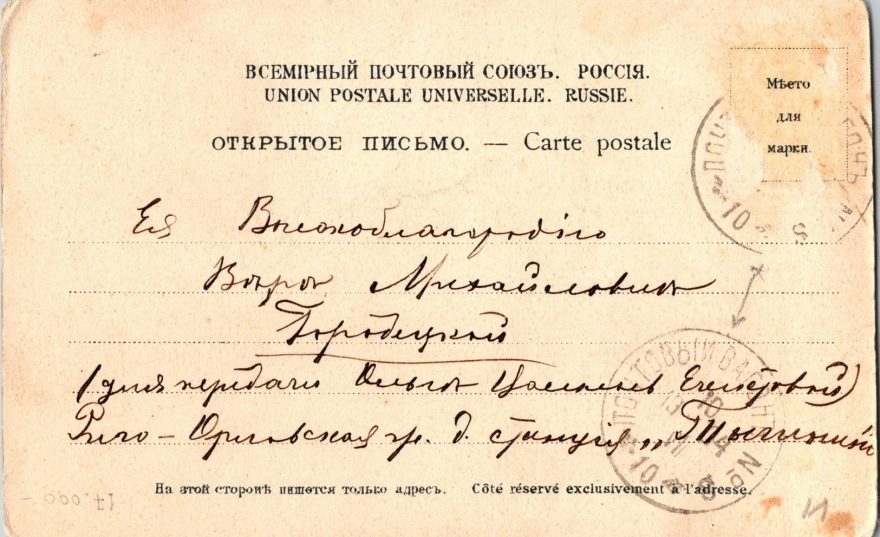 ВСЕМІРНЫЙ ПОЧТОВЫЙ СОЮЗЪ. РОССІЯ.
UNION POSTALE UNIVERSELLE. RUSSIE.
ОТКРЫТОЕ ПИСЬМО. — Carte postale
Мѣсто
для
марки.
Ея Высокоблагородію
Вѣрѣ Михайловнѣ
Городецкой
(для передачи Ольгѣ
Риго-Орловская ж. д. станція „
ПОЧТОВЫЙ ВАГОНЪ
10
№
На этой сторонѣ пишется только адресъ. Côté réservé exclusivement à l'adresse.
17.090-